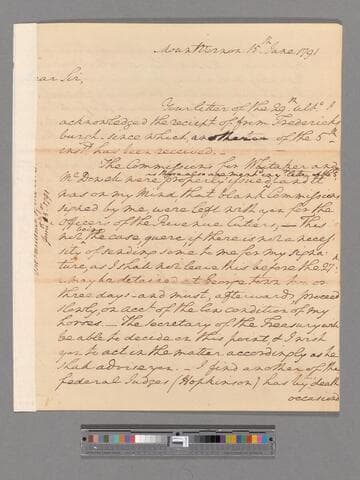 Mount Vernon 15th June 1791
ear Sir,
Your letter of the 29th ulto. I
acknowledged the reciept of from Fredericks
burgh, since which another of the 5th
inst. has been received.—
The Commissions for Whitaker and
McDowell were properly issued and it
was on my Mind, that blank Commissions
signed by me, were left with you for the
officers of the Revenue Cutters,— This
not being the case, quere, if there is not a neces-
sity of sending some to me for my signa-
ture, as I shall not leave this before the 27:
may be detained at George Town two or
three days—and must, afterwards, proceed
slowly, on acct. of the low condition of my
horses.— The Secretary of the Treasury will
be able to decide on this point, & I wish
you to act in the matter accordingly as he
shall advise you.— I find another of the
federal Judges (Hopkinson) has by death
occasioned